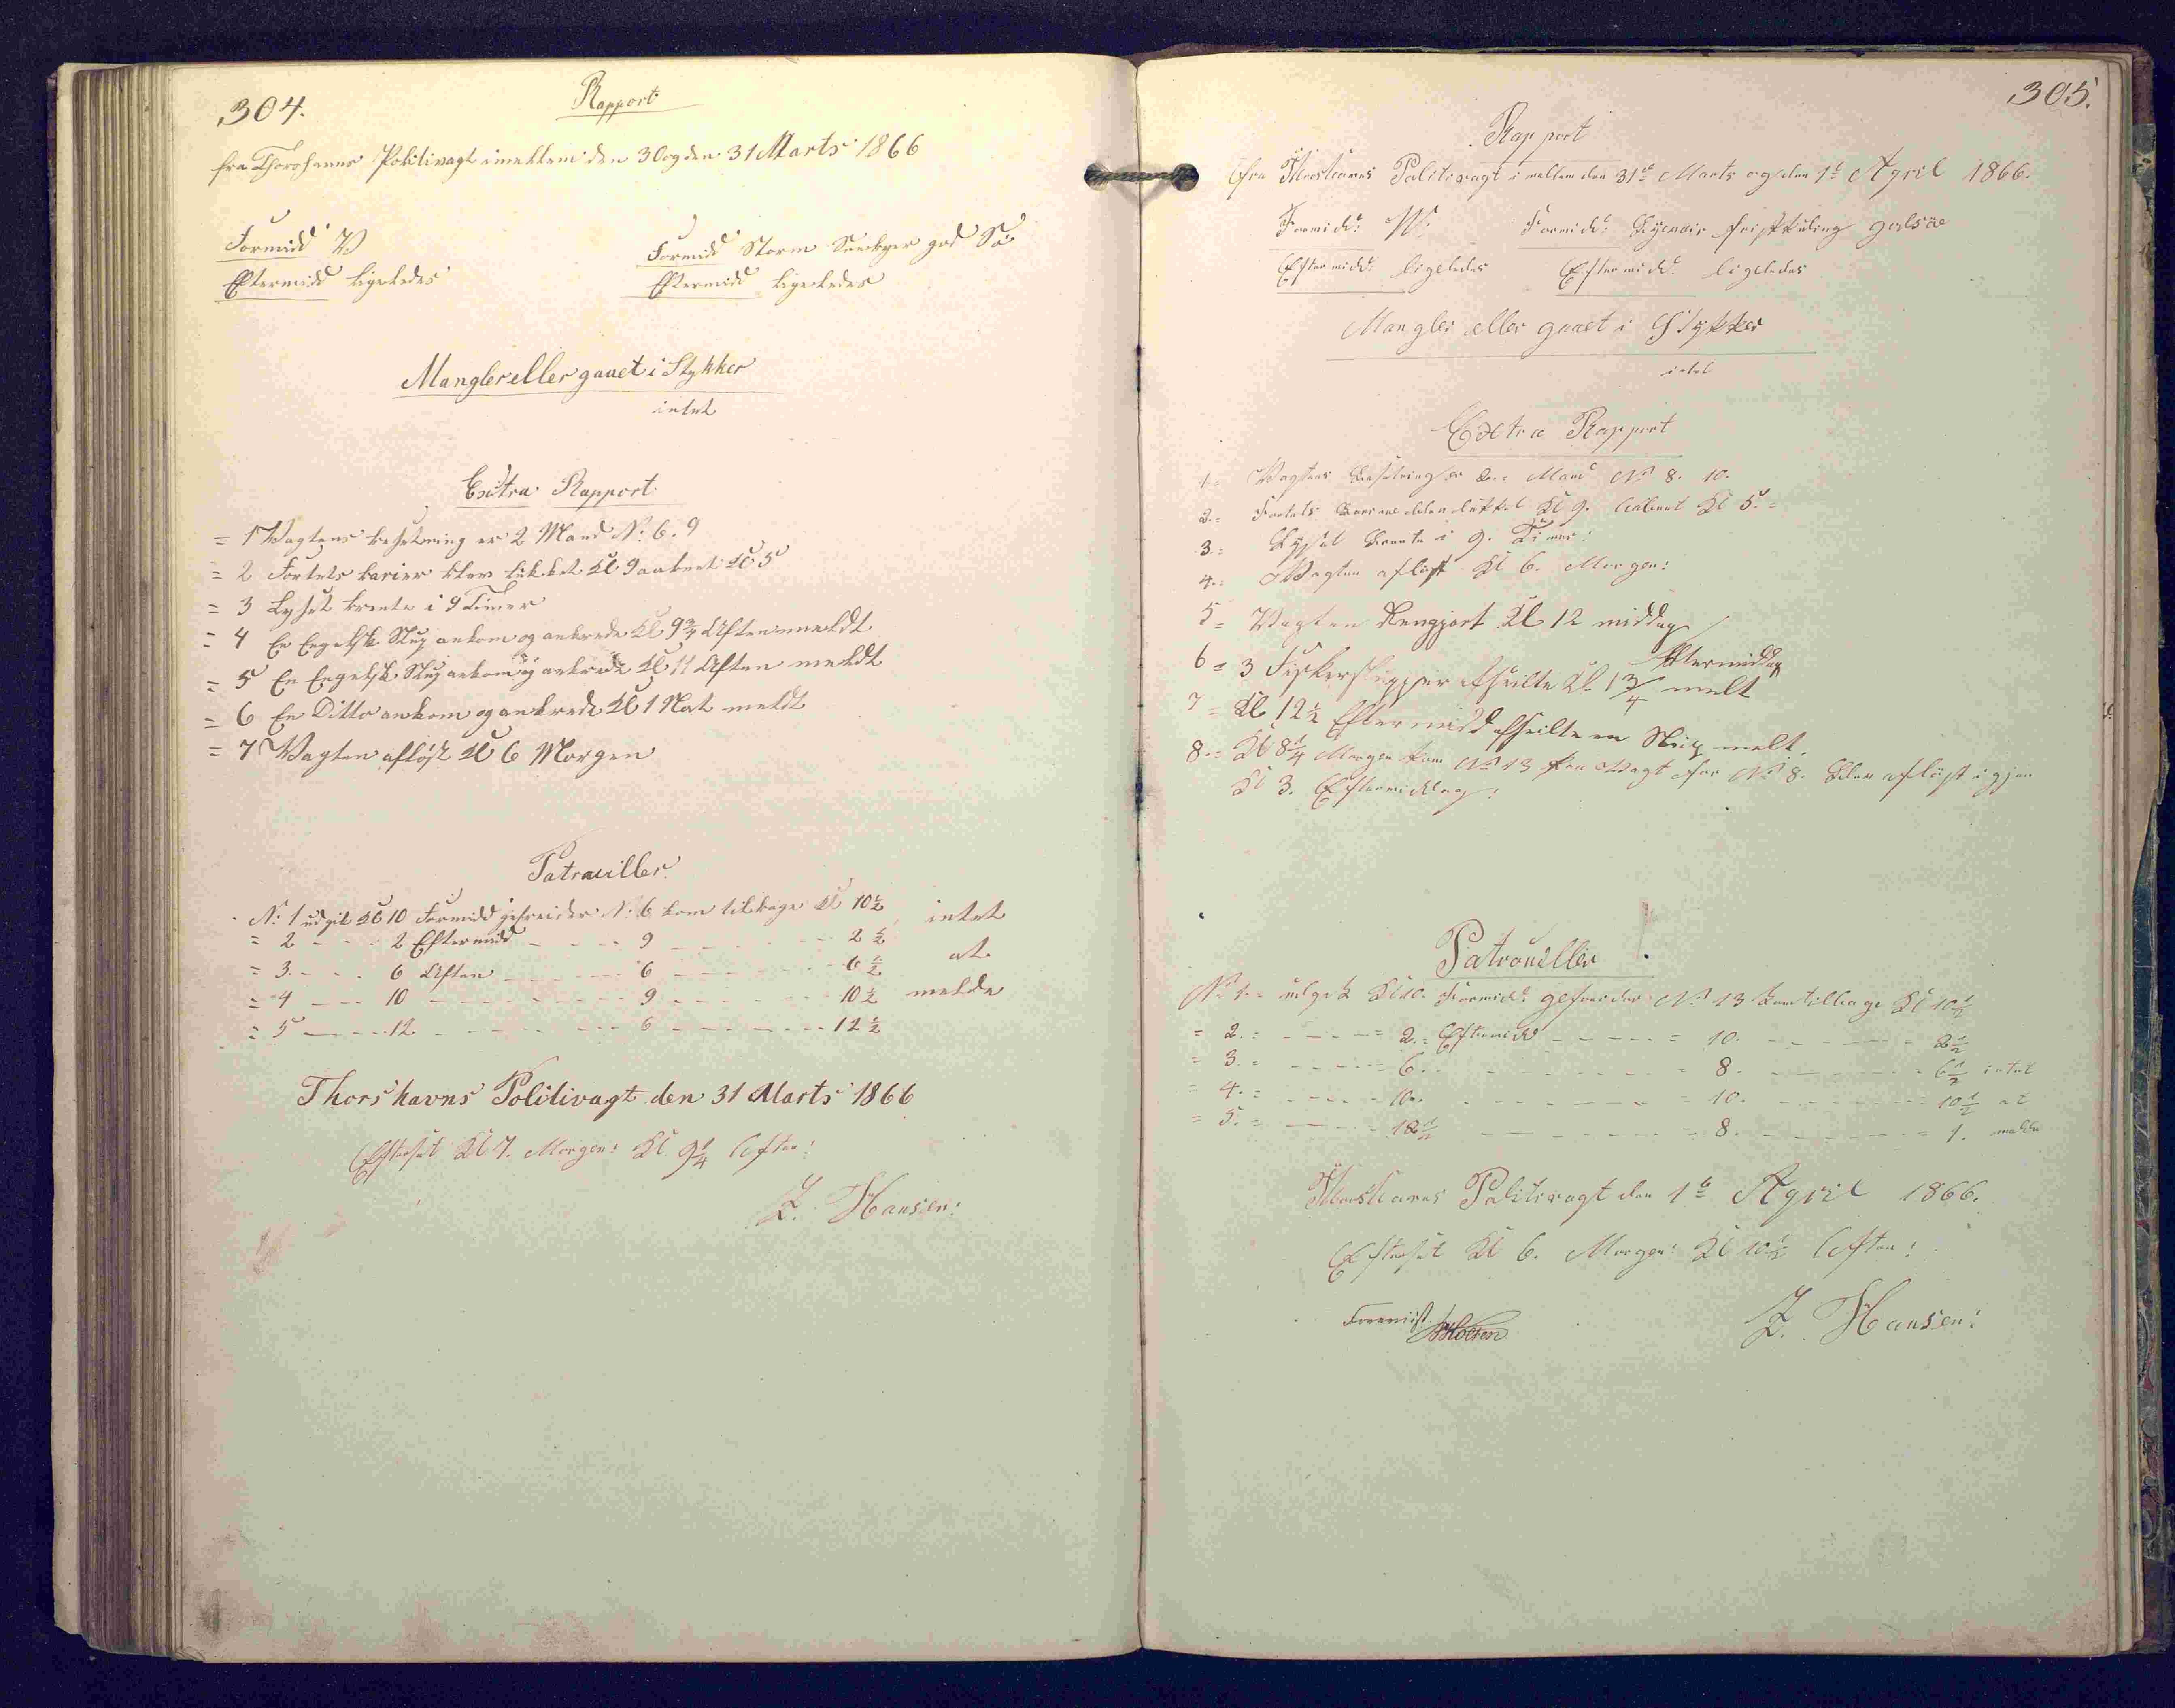 304.
Rapport
fra Thorshavns Politivagt imellem den 30 og den 31 Marts 1866
Formidd V
Formidd Storm Snebyer god Sö
Eftermidd ligeledes
Eftermidd ligeledes
Mangler eller gaaet i Stykker
intet
Extra Rapport
= 1 Vagtens besetning er 2 Mand N: 6. 9
= 2 Fortets barier blev lukket Kl 9 aabent Kl 5
= 3 Lyset brente i 9 Timer
= 4 En Engelsk Slup ankom og ankrede Kl 9 3/4 Aften meldt
= 5 En Engelsk Slup ankom og ankrede Kl 11 Aften meldt
= 6 En Ditto ankom og ankrede Kl 1 Nat meldt
= 7 Vagten aflöst Kl 6 Morgen
Patrouiller
N: 1 udgik Kl 10 Formidd gefreider N: 6 kom tilbage Kl 10 1/2 intet
= 2 - - - 2 Eftermidd - - - 9 - - - 2 1/2
at
= 3 - - - 6 Aften - - - 6 - - - 6 1/2
= 4 - - - 10 - - - 9 - - - 10 1/2 melde
= 5 - - - 12 - - - 6 - - - 12 1/2
Thorshavns Politivagt den 31 Marts 1866
Efterset Kl 7. Morgen: Kl. 9 1/4 Aften:
Z. Hansen:
305.
Rapport
fra Thorshavns Politivagt i mellem den 31te Marts og den 1te April 1866.
Formidd: W: Formidd: friskkuling god söe
Eftermidd: ligeledes Eftermidd: ligeledes
Mangler eller gaaet i Stykker
intet
Extra Rapport
1.= Vagtens besetning er 2.= Mand No 8. 10.
2.= Fortets Barriere blev lukket Kl 9. aabent Kl 5.=
3.= Lyset brente i 9. Timer:
4.= Vagten aflöst Kl 6. Morgen:
5 = Vagten Rengjort Kl 12 middag
6 = 3 Fiskerslupper afseilte Kl. 1 3/4 Eftermiddag melt
7 = Kl 12 1/2 Eftermidd afseilte en Slup melt.
8.= Kl 8 1/4 Morgen kom No 13 paa Vagt for No 8. blev aflöst igjen
Kl 3. Eftermiddag:
Patrouiller
N: 1.= udgik Kl 10. Formidd: gefreider No 13 kom tilbage Kl 10 1/2
= 2.= - - - = 2.= Eftermidd - - - = 10. - - - = 2 1/2
= 3.= - - - = 6. - - - = 8. - - - = 6 1/2 intet
= 4.= - - - = 10. - - - = 10. - - - = 10 1/2 at
= 5.= - - - = 12 1/2 - - - = 8. - - - = 1. melde
Thorshavns Politivagt den 1te April 1866.
Efterset Kl 6. Morgen: Kl 10 1/2 Aften:
Foreviist
Holten
Z. Hansen: